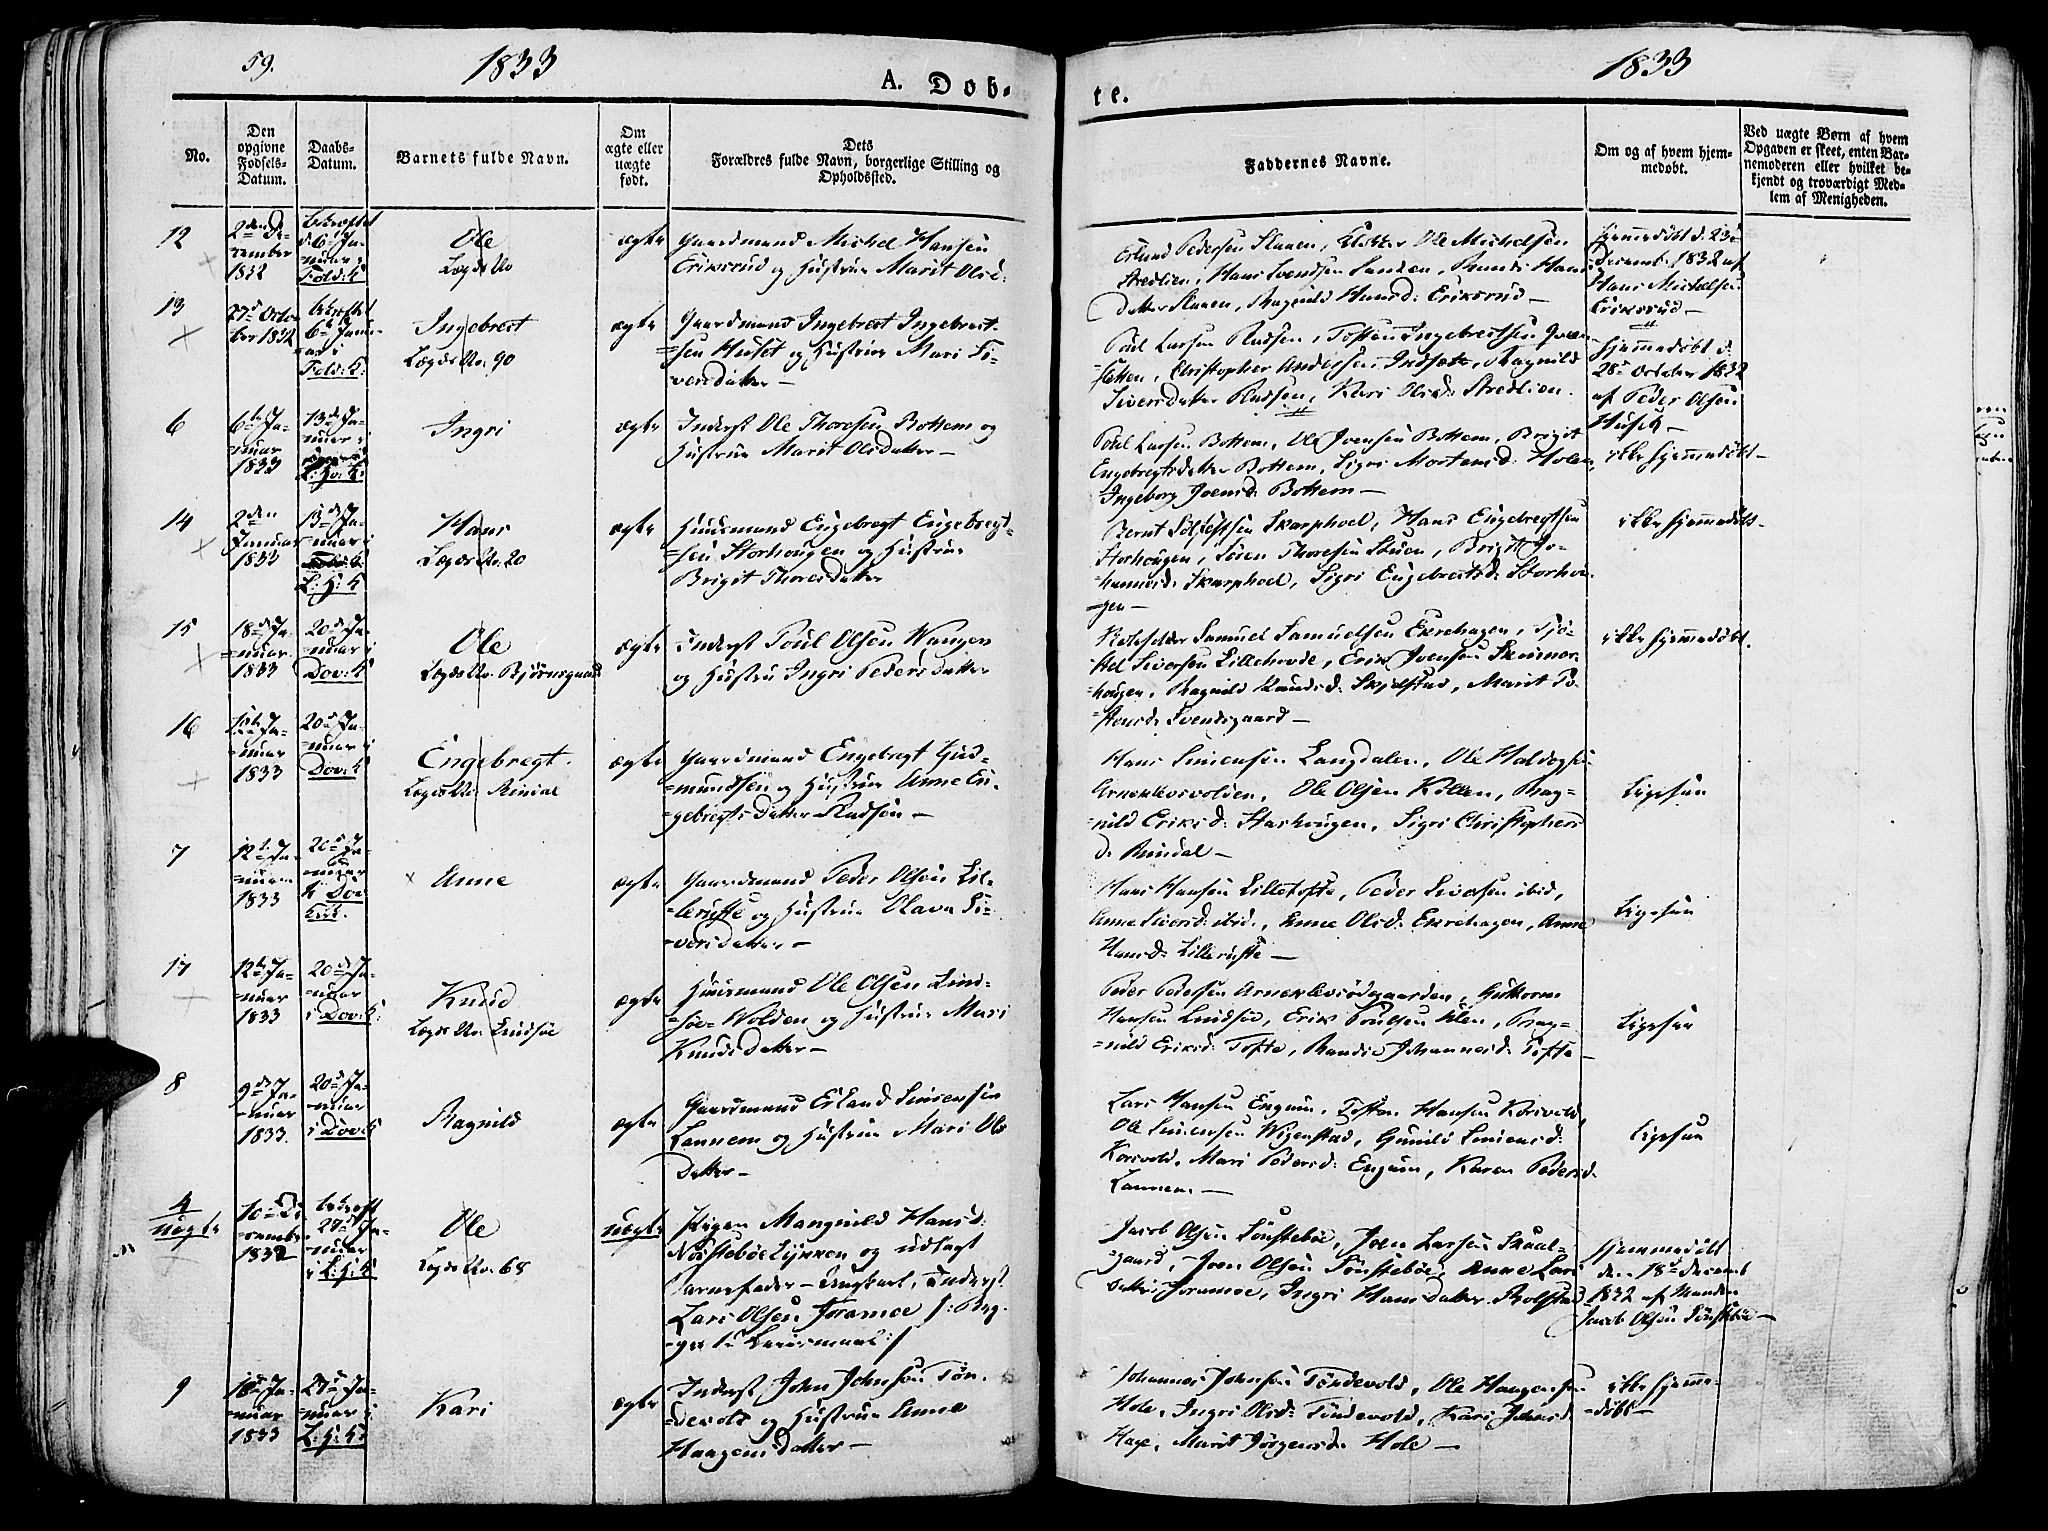 59.
1833
A. Døb-
te.
1833
No.
Den opgivne Fødsels-Datum.
Daabs-Datum.
Barnets fulde Navn.
Om ægte eller uægte født.
Dets
Forældres fulde Navn, borgerlige Stilling og
Opholdssted.
Faddernes Navne.
Om og af hvem hjem-
medøbt.
Ved uægte Børn af hvem
Opgaven er skeet, enten Bar-
nemoderen eller hvilket be-
kjendt og troværdigt Med-
lem af Menigheden.
12
2den De-
cember
1832
Ole
Lægds No
ægte
Gaardmand Michel Hansen
Eriksrud og Hustrue Marit Olsd:
Erland Pedersen Slaaen, Ole Michelsen
Hans Svendsen Randi Hans
datter Slaaen, Ragnild Hansd: Eriksrud —
Hjemmedøbt d. 23
Decemb. 1832 af
Hans Michelsen
Eriksrud —
13
27d Octo
ber 1832
Ingebrect
Lægds No. 90
ægte
Gaardmand Ingebrect Ingebrect-
sen Huset og Hustrue Mari Si-
versdatter —
Poul Larsen Rudsen, Tosten Ingebrectsen
Christopher Andersen Ragnild
Siversdatter Rudsen, Kari Olsd:
Hjemmedøbt d.
28d October 1832
af Peder Olsen
Huset —
6
6te Ja-
nuar
1833
13d Ja-
nuar i
L: H: K:
Ingri
ægte
Inderst Ole Thoresen Bottem og
Hustrue Marit Olsdatter —
Poul Larsen Bottem, Ole Joensen Bottem, Brigit
Engebregtsdatter Bottem, Sigri Mortensd: Holen,
Ingeborg Joensd: Bottem —
ikke hjemmedøbt —
14
2den
Januar
1833
13d Ja-
nuar i
L: H: K
Hans
Lægds No. 20
ægte
Huusmand Engebregt Engebregt-
sen Storhougen og Hustrue
Brigit Thoresdatter
Bernt Skarphoel, Hans Engebregtsen
Storhougen, Søren Thoresen Stuen, Brigit Jo-
hannesd: Skarphoel, Sigri Engebrectsd: Storhou
gen —
ikke hjemmedøbt —
15
18d Ja-
nuar
1833
20d Ja-
nuar i
Dov: K
Ole
Lægds No. Bjørnsgaard
ægte
Inderst Poul Olsen Wangen
og Hustru Ingri Pedersdatter
Samuel Samuelsen Ekrehagen,
Siversen Lillehovde, Erik Joensen
hougen, Ragnild Knudsd: Skjelstad, Marit To-
stensd: Svendsgaard —
ikke hjemmedøbt.
16
Ja-
nuar
1833
20d Ja-
nuar i
Dov: K
Engebregt.
Lægds No. Rindal
ægte
Gaardmand Engebregt Gud-
mundsen og Hustrue Anne En-
gebregtsdatter Rudsen —
Hans Simensen Langdalen, Ole
Ole Olsen Killen, Rag-
nild Eriksd: Storhougen, Sigri Christophers
d. Rindal —
Ligesaa
7
12t Ja-
nuar
1833
20d Ja-
nuar
i Dov
Kirk.
Anne
ægte
Gaardmand Peder Olsen Lil-
leruste og Hustrue Olava Si-
versdatter —
Hans Hansen Lilletofte, Peder Siversen ibid,
Anne Siversd: ibid., Anne Olsd: Ekrehagen, Anne
Hansd: Lilleruste —
Ligesaa
17
12te Ja-
nuar
1833
20d Ja-
nuar
i Dov: K:
Knud
Lægds No. Lindsøe
ægte
Huusmand Ole Olsen Lind-
søe-Wolden og Hustrue Mari
Knudsdatter —
Peder Pedersen Guttorm
Hansen Lindsøe, Erik Poulsen Rag-
nild Eriksd: Tofte, Randi Johannesd: Tofte —
Ligesaa
8
9d Ja-
nuar
1833.
20d Ja-
nuar
i Dov: K
Ragnild
ægte
Gaardmand Erland Simensen
Lannem og Hustrue Mari Ols
datter —
Lars Hansen Engum, Tosten Hansen Korsvold,
Ole Simensen Wigenstad, Gunild Simensd:
Korsvold, Mari Pedersd: Engum, Karen Pedersd
Lannem. —
Ligesaa
4
uægte
10d De
cember
1832
27d Ja-
nuar
i L: H: K
Ole
Lægds No. 68
uægte
Pigen Mangnild Hansd:
og udlagt
Barnefader — Ungkarl, Inderst
Lars Olsen Joramoe /: Beg-
ges 1te Leiermaal :/
Jacob Olsen Tønsteboe, Joen Larsen
gaard, Joen Olsen Tønsteboe, Anne Lars
datter Joramoe, Ingri Hansdatter Rolstad
Hjemmedøbt
den 18d Decemb
1832 af Manden
Jacob Olsen Tønsteboe —
9
Ja-
nuar
1833
27d Ja-
nuar i
L: H: K:
Kari
ægte
Inderst John Johnsen Tøn-
devold og Hustrue Anne
Haagensdatter —
Johannes Johnsen Tøndevold, Ole Haagensen
Hole, Ingri Olsd: Tøndevold, Kari Johnsd:
Hage, Marit Jørgensd: Hole —
ikke hjemme-
døbt —